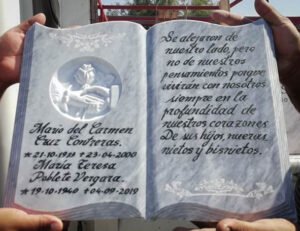 Mario del Carmen
Cruz Contreras.
*21-10-1933 +23-04-2000
María Teresa
Poblete Vergara.
*19-10-1940 +04-09-2019
Se alejaron de
nuestro lado, pero
no de nuestros
pensamientos porque
viviran con nosotros
siempre en la
profundidad de
nuestros corazones.
De sus hijos, nueras
nietos y bisnietos.